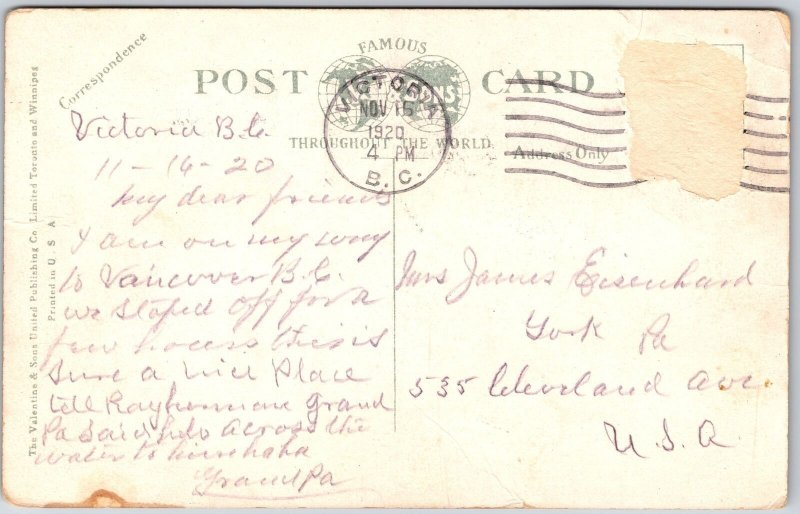 The Valentine & Sons United Publishing Co. Limited Toronto and Winnipeg
Printed in U S A
Correspondence
FAMOUS
POST CARD
THROUGHOUT THE WORLD
Address Only
VICTORIA
NOV 15
1920
4 PM
B. C.
Victoria B.C.
11-14-20
My dear friends
I am on my way
to Vancover B.C.
we stoped off for a
few hours this is
Sure a nice Place
tell Ray grand
Pa Said across the
water to
Grand Pa
Mrs James Eisenhard
York Pa
535 Cleveland Ave
U.S.A